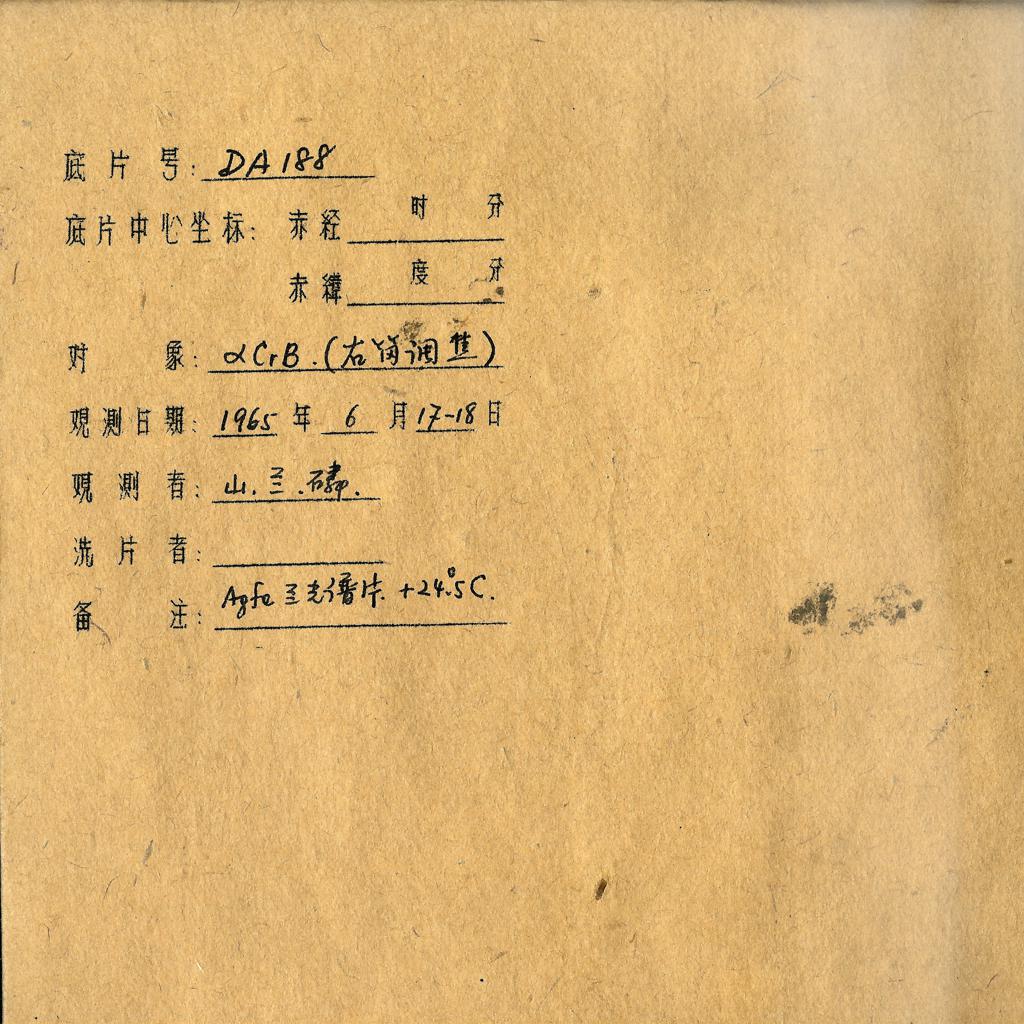 底片号: DA188
底片中心坐标: 赤经 时 分
赤纬 度 分
对象: αCrB.(右筒调焦)
观测日期: 1965年6月17-18日
观测者: 山.兰.
洗片者:
备注: Agfa 兰光谱片. +24°.5C.